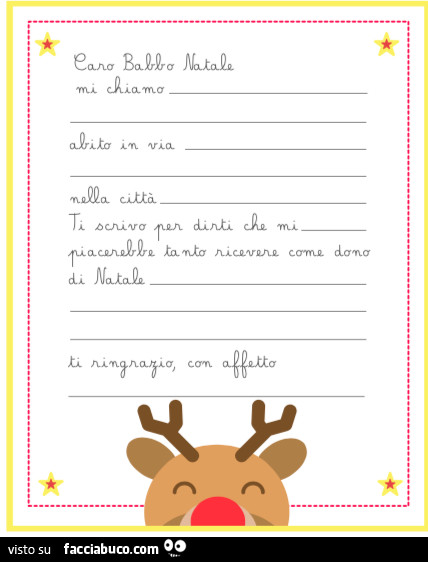 Caro Babbo Natale
mi chiamo
abito in via
nella città
Ti scrivo per dirti che mi
piacerebbe tanto ricevere come dono
di Natale
ti ringrazio, con affetto
visto su facciabuco.com